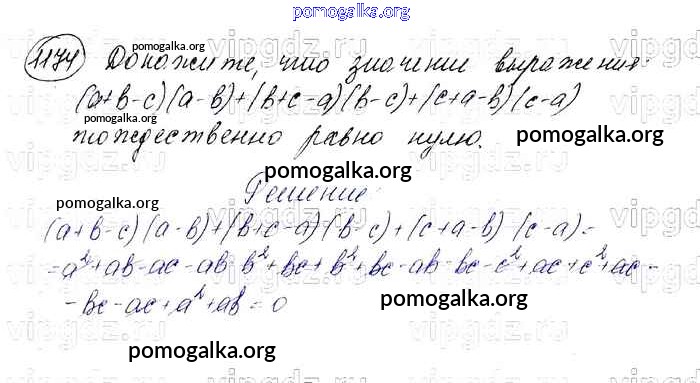 pomogalka.org
1174 Докажите, что значение выражения:
pomogalka.org
(a+b-c)(a-b)+(b+c-a)(b-c)+(c+a-b)(c-a)
тождественно равно нулю.
pomogalka.org
pomogalka.org
Решение:
pomogalka.org
(a+b-c)(a-b)+(b+c-a)(b-c)+(c+a-b)(c-a)=
=a²+ab-ac-ab-b²+bc+b²+bc-ab-bc-c²+ac+c²+ac-
-bc-ac+a²+ab=0
pomogalka.org
pomogalka.org